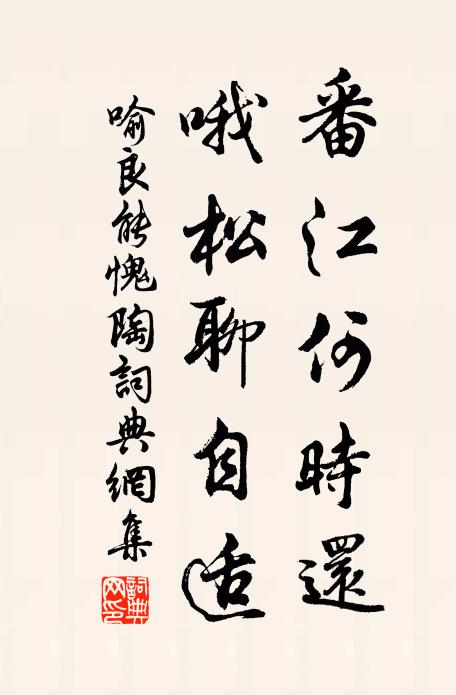 番江何時還
哦松聊自适
喻良能愧陶詞典網集
詞典网印